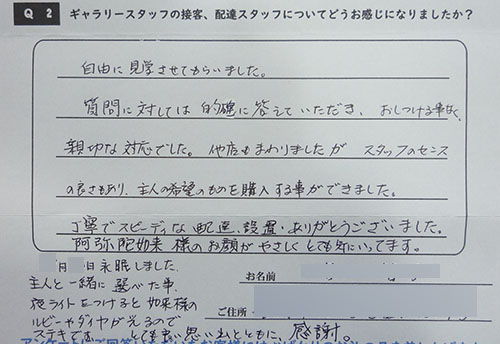 Q 2 ギャラリースタッフの接客、配達スタッフについてどうお感じになりましたか?
自由に見学させてもらいました。
質問に対しては的確に答えていただき、おしつける事なく、
親切な対応でした。他店もまわりましたが スタッフのセンス
の良さもあり、主人の希望のものを購入する事ができました。
丁寧でスピーディな配達、設置・ありがとうございました。
阿弥陀如来様のお顔がやさしくとても気にいってます。
月 日永眠しました。
主人と一緒に選べた事、
夜ライトをつけると如来様の
ルビーやダイヤがえるので
ステキです 思い出とともに、感謝。
お名前
ご住所